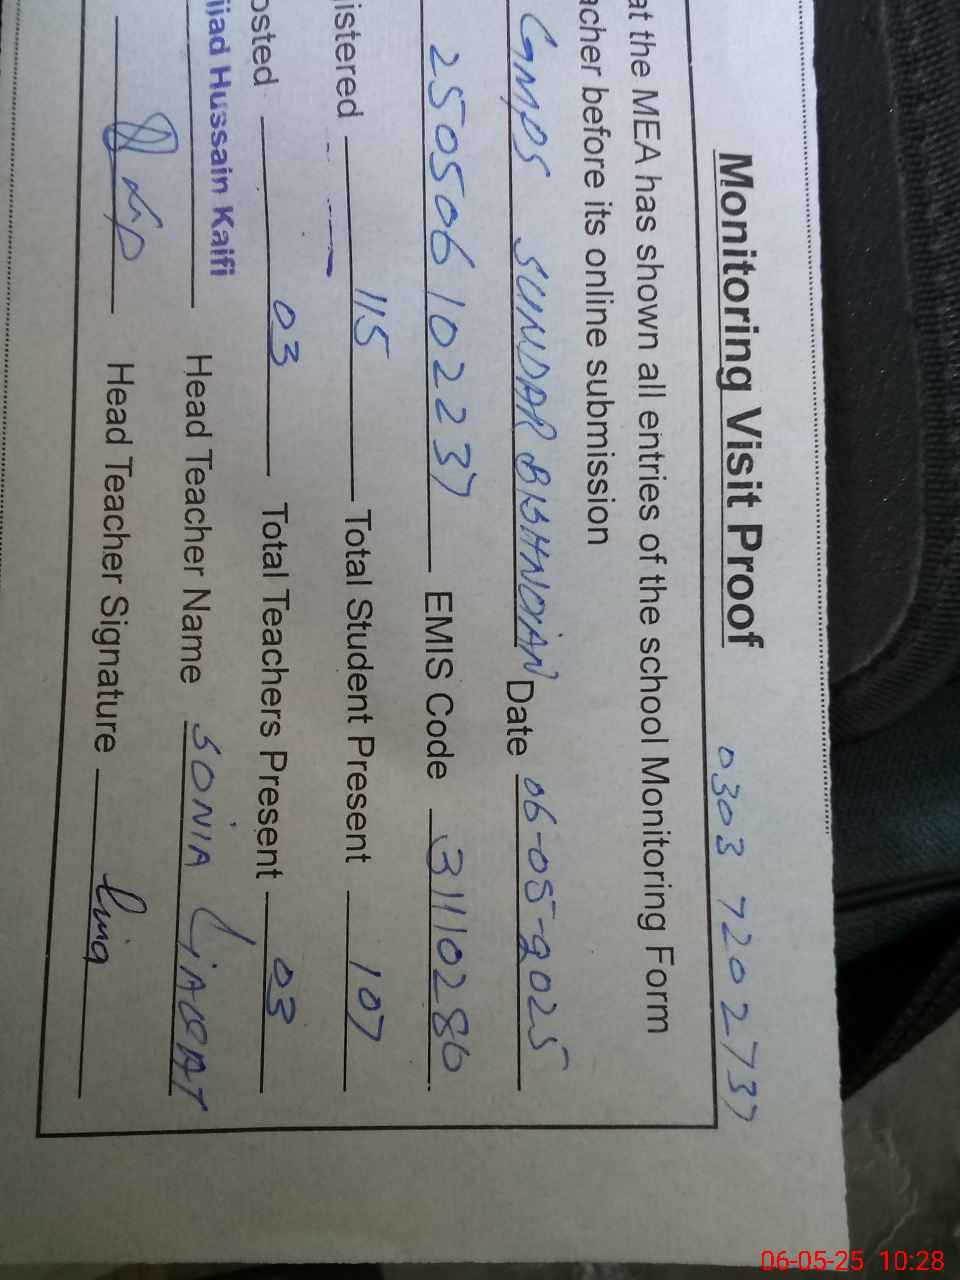 Monitoring Visit Proof 0303 7202737
at the MEA has shown all entries of the school Monitoring Form
acher before its online submission
GMPS SUNDAR BISHNDIAN Date 06-05-2025
250506102237 EMIS Code 31110280
istered 115 Total Student Present 107
osted 03 Total Teachers Present 03
jjad Hussain Kaifi Head Teacher Name SONIA LIAQAT
Head Teacher Signature
06-05-25 10:28